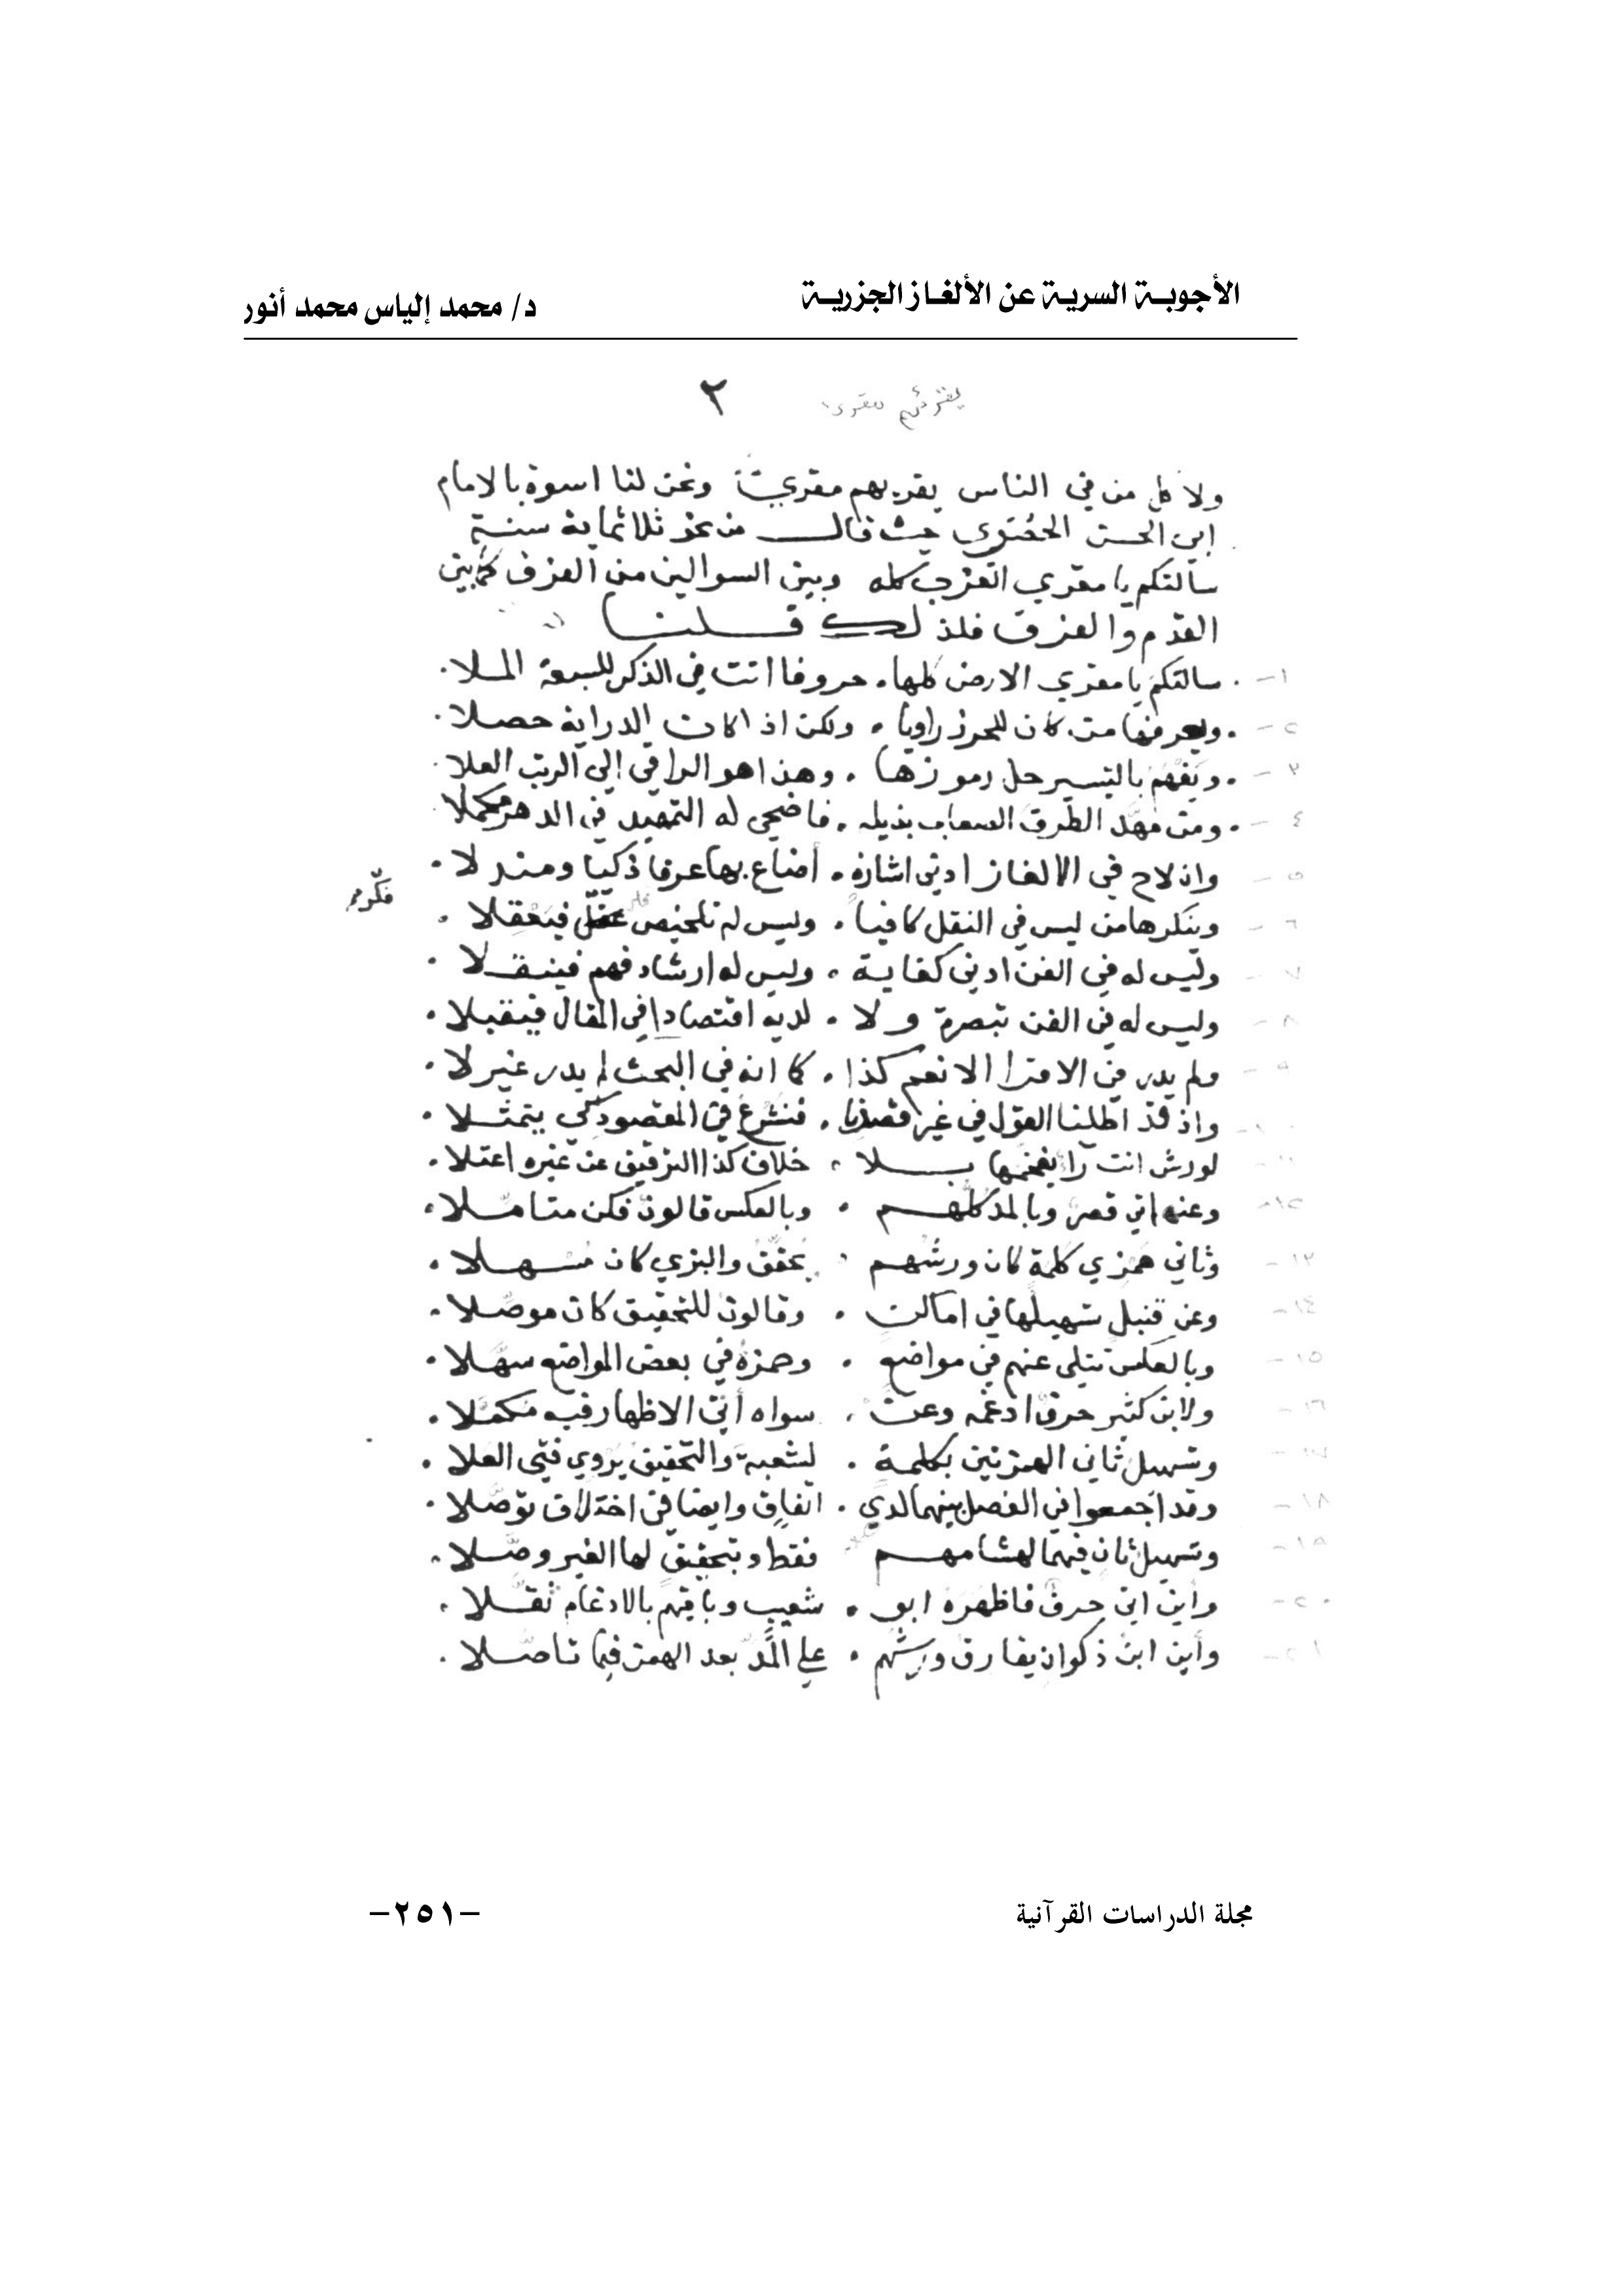 الأجوبة السرية عن الألغاز الجزرية
د/ محمد إلياس محمد أنور
٢
ولا كل من في الناس يقريهم مقري ونحن لنا اسوة بالامام
ابي الحسن الحصري حيث قال من نحو ثلاثماية سنة
سالتكم يا مقري الغرب كله وبين السوالين من الفرق كما بين
القدم والفرق فلذلك قلنا
١- سالتكم يا مقري الارض كلها . حروفا اتت في الذكر للسبعة الملا .
٢- ويعرفها من كان للحرز راويا . ولكن اذا كان الدراية حصلا .
٣- ويفهم بالتيسير حل رموزها . وهذا هو الراقي الي الرتب العلا .
٤- ومن مهد الطرق الصعاب بذيله . فاضحي له التمهيد في الدهر مكملا
٥- واذ لاح في الالغاز ادني اشارة . أضاع بها عرفا ذكيا ومندلا .
٦- وينكرها من ليس في النقل كافيا . وليس له تلخيص فيعقلا .
٧- وليس له في الفن ادني كفاية . وليس له ارشاد فهم فينقلا .
٨- وليس له في الفن تبصرة ولا . لديه اقتصادا في المقال فيقبلا .
٩- ولم يدر في الاقرا الا نعم كذا . كما انه في البحث لم يدر غير لا .
١٠- واذ قد اطلنا القول في غير قصدنا . فنشرع في المقصود كي يتمثلا .
١١- لورش اتت را يفخمها بلا . خلاف كذا الترقيق عن غيره اعتلا .
١٢- وعنه اتي قصر وبالمد كلهم . وبالعكس قالون فكن متاملا .
١٣- وثاني همزي كلمة كان ورشهم . يحقق والبزي كان مسهلا .
١٤- وعن قنبل تسهيلها في اماكن . وقالون للتحقيق كان موصلا .
١٥- وبالعكس تتلي عنهم في مواضع . وحمزة في بعض المواضع سهلا .
١٦- ولابن كثير حرف ادغمه وعن . سواه أتي الاظهار فيه مكملا .
١٧- وتسهيل ثاني الهمزتين بكلمة . لشعبة والتحقيق يروي فتي العلا .
١٨- وقد اجمعوا في الفصل بينهما لدي . اتفاق وايضا في اختلاف توصلا .
١٩- وتسهيل ثان فيهما لهشامهم فقط وبتحقيق لها الغير وصلا .
٢٠- وأين اتي حرف فاظهره ابو . شعيب وباقيهم بالادغام ثقلا .
٢١- وأين ابن ذكوان يفارق ورشهم . علي المد بعد الهمز فيما تاصلا .
مجلة الدراسات القرآنية
-٢٥١-